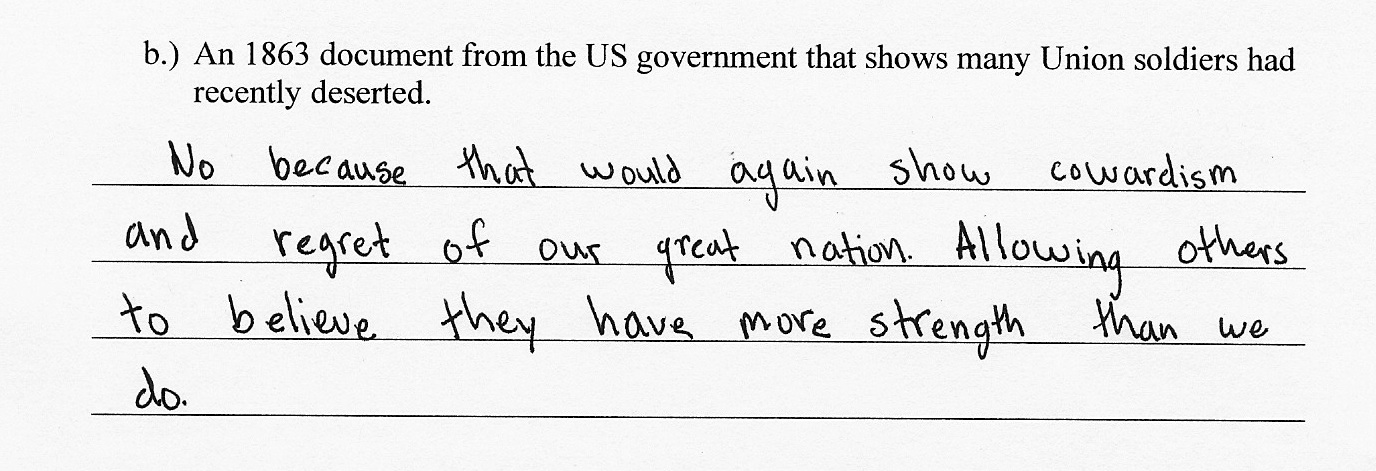 b.) An 1863 document from the US government that shows many Union soldiers had
recently deserted.
No because that would again show cowardism
and regret of our great nation. Allowing others
to believe they have more strength than we
do.